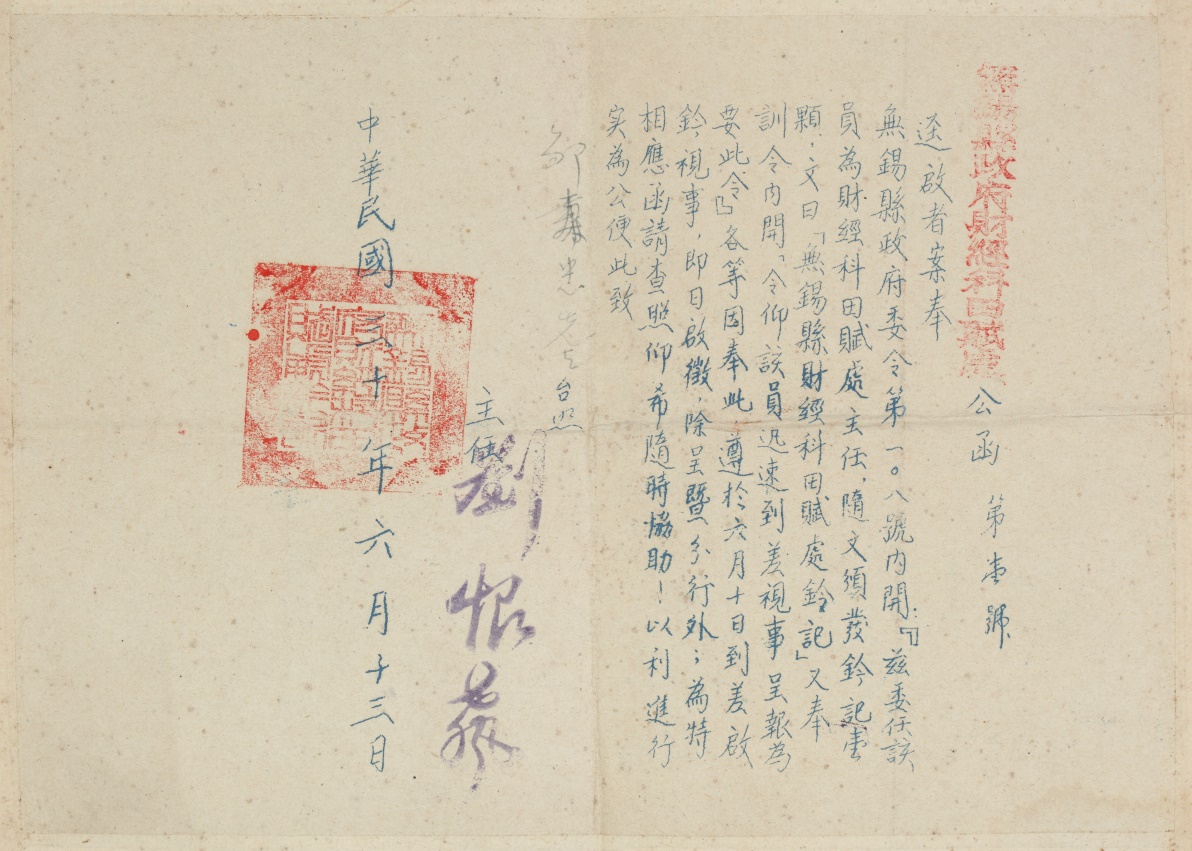 無錫縣政府財經科田賦處 公函 第壹號
逕啟者案奉
無錫縣政府委令第一〇八號內開：『茲委任該
員為財經科田賦處主任，隨文頒發鈐記壹
顆，文曰「無錫縣財經科田賦處鈐記」又奉
訓令內開「令仰該員迅速到差視事呈報為
要此令」各等因奉此遵於六月十日到差啟
鈐視事，即日啟徵，除呈暨分行外；為特
相應函請查照仰希隨時協助！以利進行
实為公便此致
鄒 忠先生台照
主任劉
中華民國三十年六月十三日